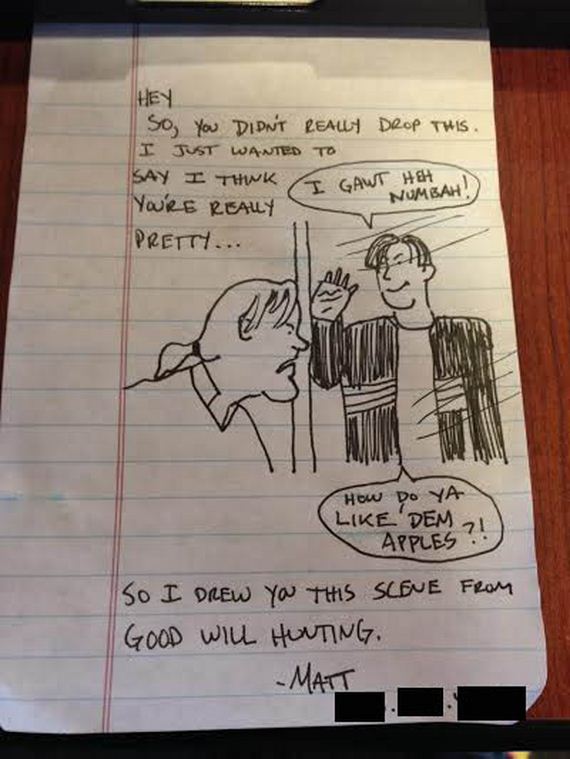 HEY
SO, YOU DIDN'T REALLY DROP THIS.
I JUST WANTED TO
SAY I THINK
YOU'RE REALLY
PRETTY...
I GAWT HEH
NUMBAH!
HOW DO YA
LIKE 'DEM
APPLES?!
SO I DREW YOU THIS SCENE FROM
GOOD WILL HUNTING.
-MATT